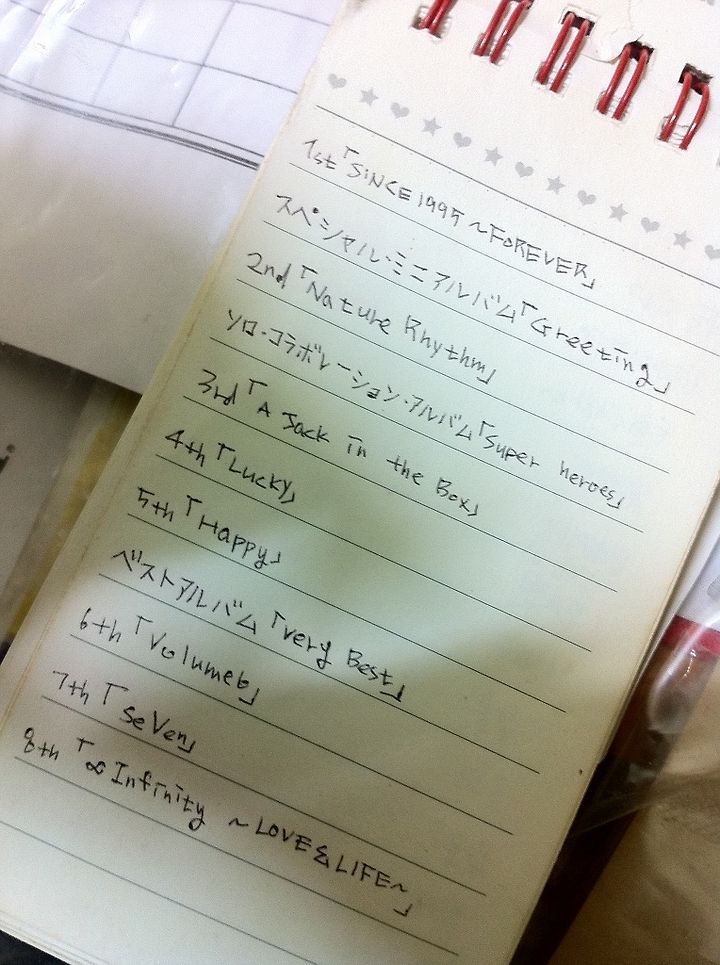 1st「SiNCE1995〜FOREVER」
スペシャル・ミニアルバム「Greeting」
2nd「Nature Rhythm」
ソロ・コラボレーション・アルバム「Super heroes」
3rd「A Jack in the Box」
4th「Lucky」
5th「Happy」
ベストアルバム「Very Best」
6th「Volume6」
7th「SeVen」
8th「∞Infinity 〜LOVE&LIFE〜」